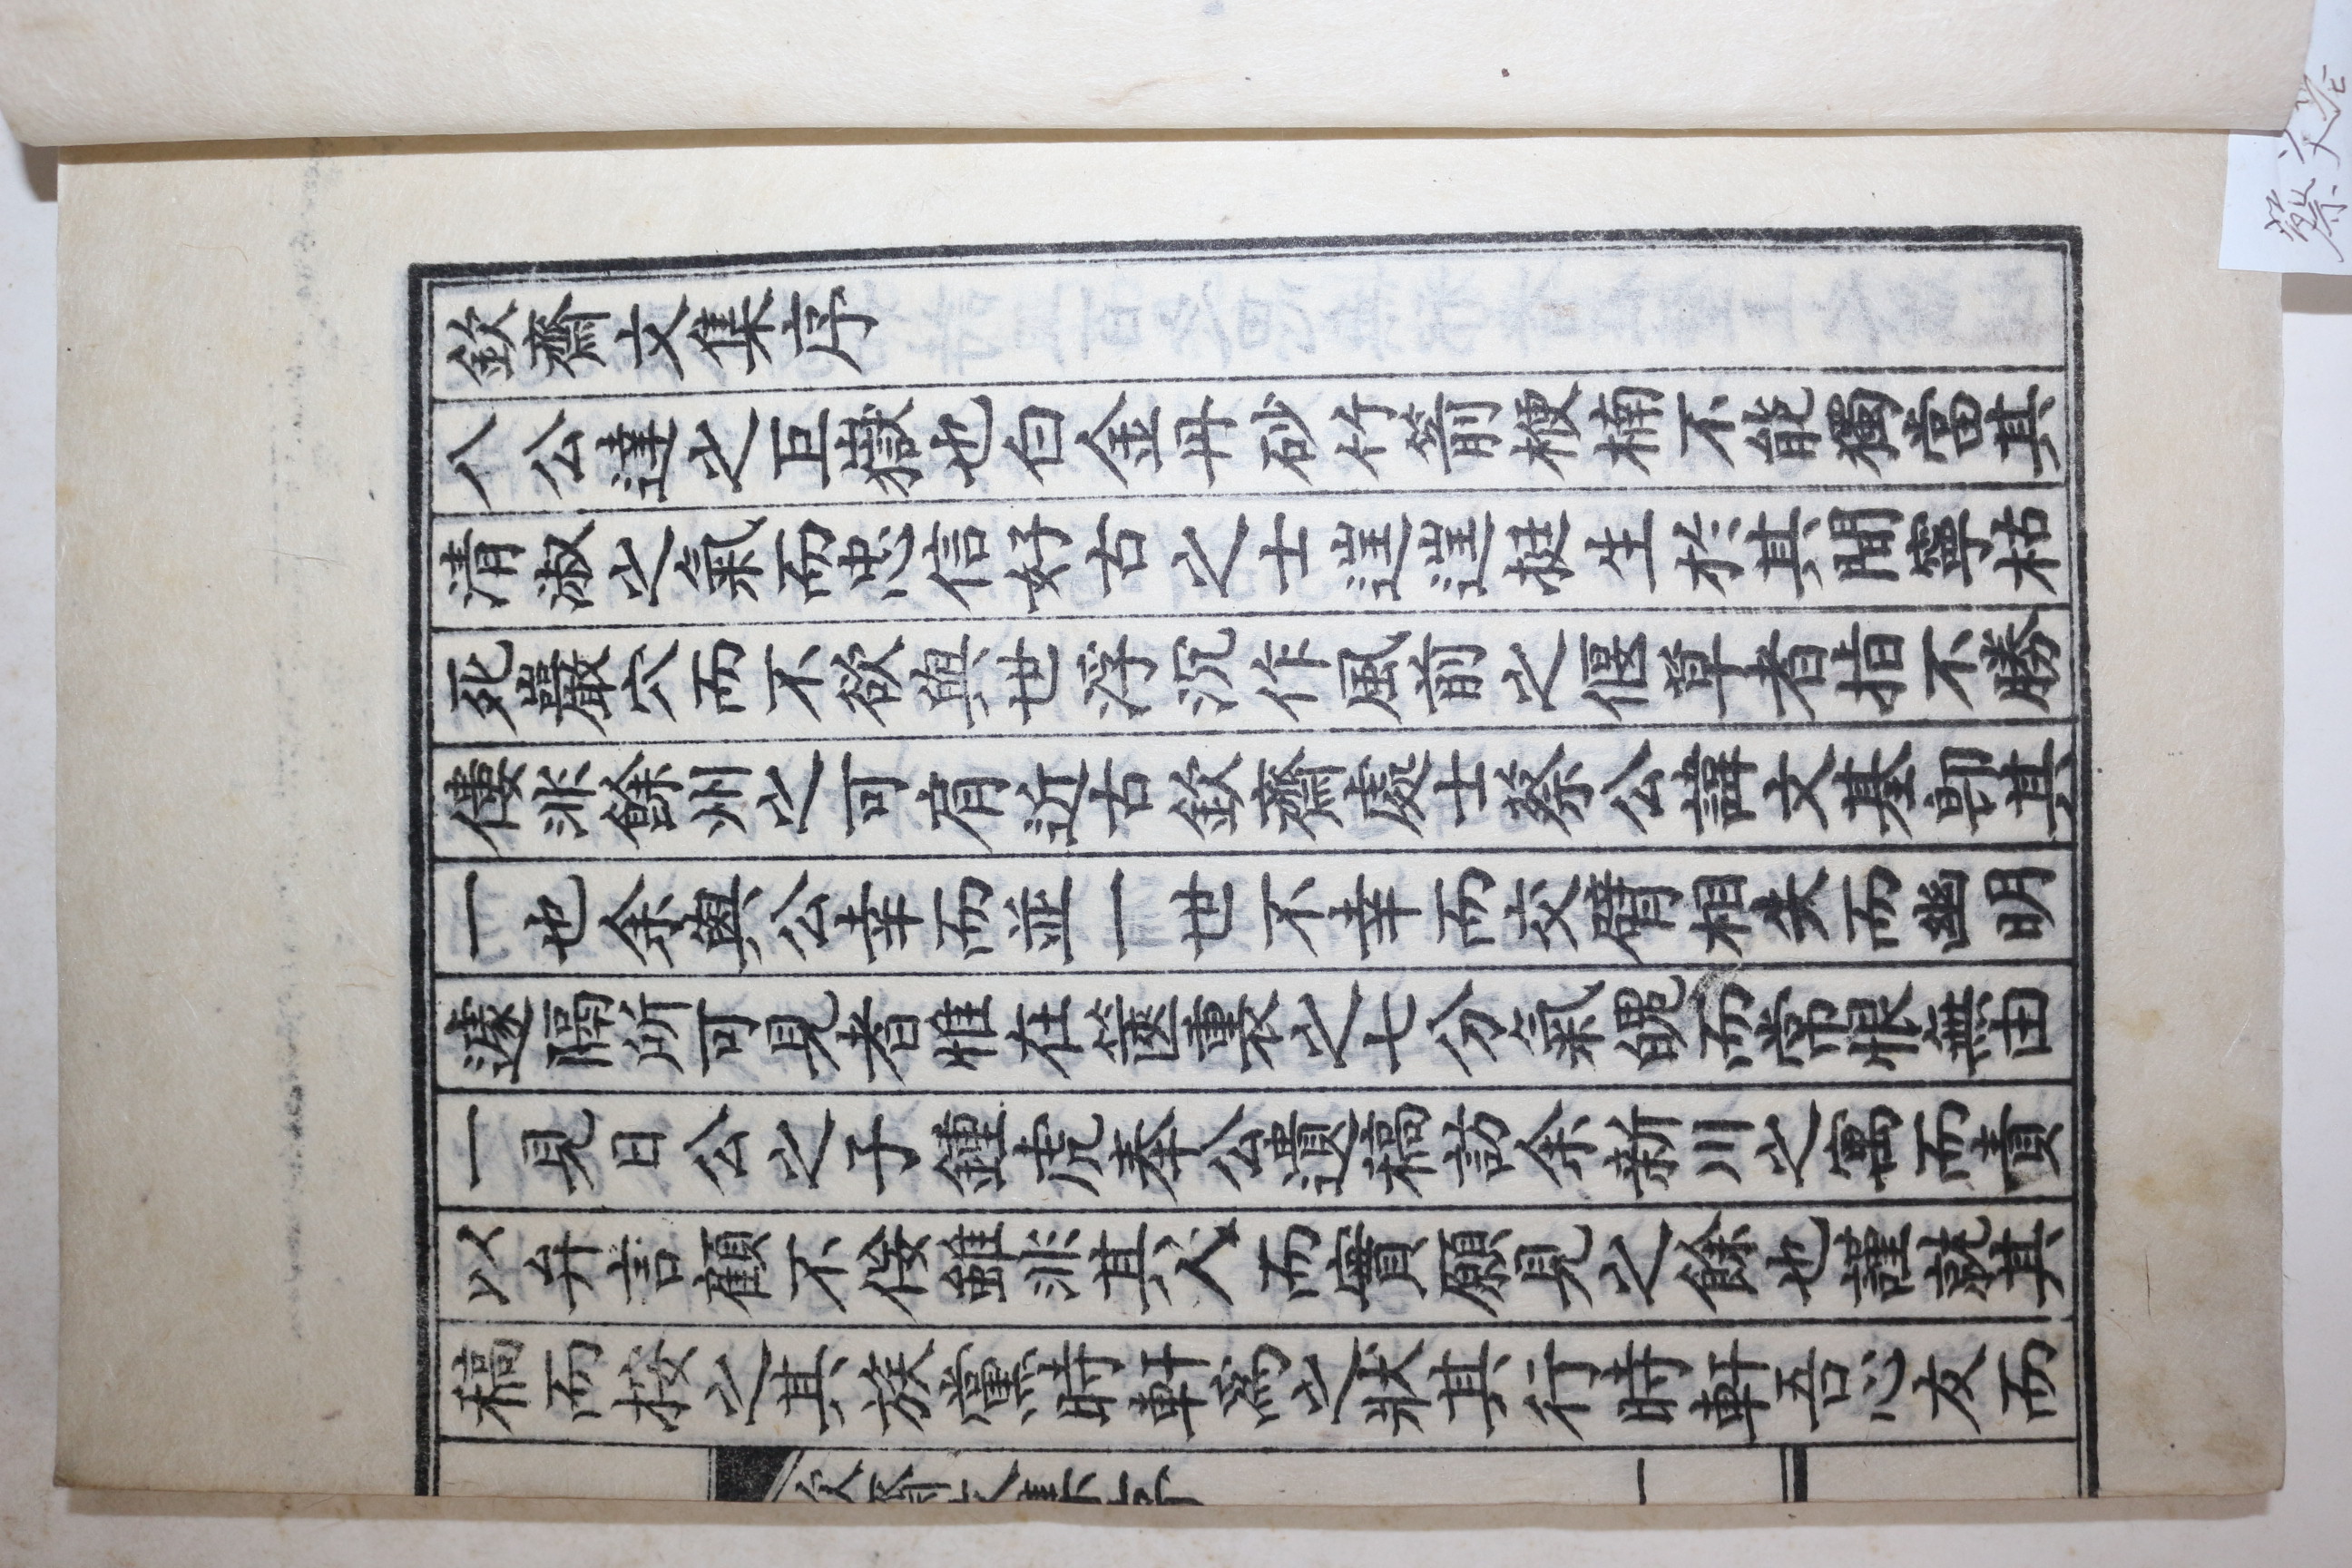 欽齋文集序
八公達之巨嶽也白金丹砂竹箭楩楠不能獨當其
清淑之氣而忠信好古之士逬逬挺生於其間寧枯
死巖穴而不欲與世浮沉作風前之偃草者指不勝
僂非餘州之可肩近古欽齋處士蔡公諱文基卽其
一也余與公幸而並一世不幸而交臂相失而幽明
遽隔所可見者惟在篋裏之七分氣魄而常恨無由
一見日公之子鍾虎奉公遺稿訪余新川之寓而責
以弁言顧不佞雖非其人而實願見之餘也謹就其
稿而按之其族黨時軒爲之狀其行時軒吾心友而
欽齋文集序
一
蔡文基